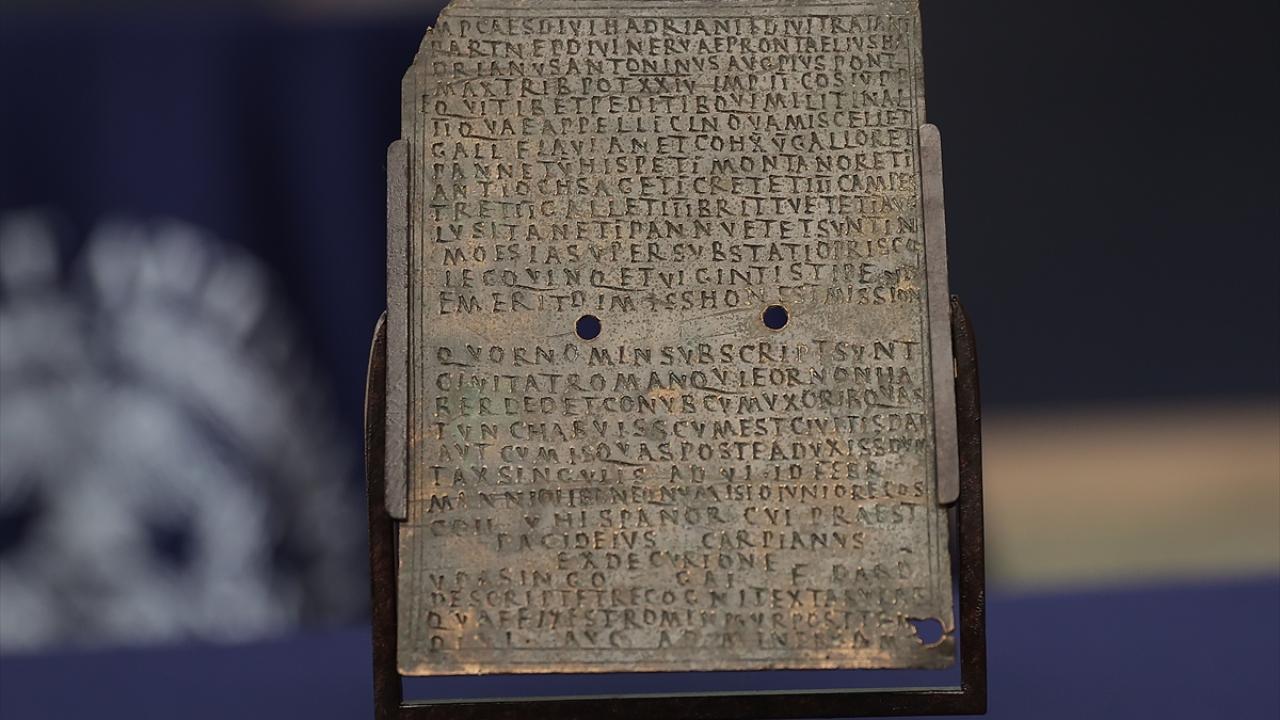 MPCAESDIVIHADRIANIFDIVITRAIANI
PARTNEPDIVINERVAEPRONTAELIVSHA
DRIANVSANTONINVSAVGPIVSPONT
MAXTRIBPOTXXIV IMPII COSIVPP
EQVITIBETPEDITIBQVIMILITINAL
IIQVAEAPPELLICLNOVAMISCELLET
GALLFLAVIANETCOHXVGALLORETI
PANNETVHISPETIMONTANORETI
ANTIOCHSAGETICRETETIIICAMPES
TRETIIGALLETIIIBRITTVETETIIAVG
LVSITANETIPANNVETETSVNTIN
MOESIASVPERSVBSTATIOPRISCO
LEGQVINQETVIGINTISTIPE
EMERITDIMISSHONESTMISSION
QVORNOMINSVBSCRIPTSVNT
CIVITATROMANQVIEORNONHA
BERDEDETCONVBCVMVXORIBQVAS
TVNCHABVISSCVMESTCIVITISDAT
AVTCVMISQVASPOSTEADVXISSDVM
TAXSINGVLIS AD VI ID FEBR
COH VHISPANOR CVI PRAEST
PACIDEIVS CARPIANVS
EXDECVRIONE
DESCRIPTETRECOGNITEXTABVLAE